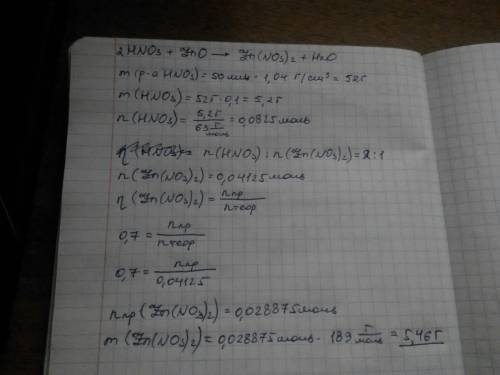 2HNO3 + ZnO → Zn(NO3)2 + H2O
m(р-а HNO3) = 50 мл · 1,04 г/см³ = 52г
m(HNO3) = 52г · 0,1 = 5,2г
n(HNO3) = 5,2г / 63 г/моль = 0,0825 моль
n(HNO3) : n(Zn(NO3)2) = 2:1
n(Zn(NO3)2) = 0,04125 моль
η(Zn(NO3)2) = nпр / nтеор
0,7 = nпр / nтеор
0,7 = nпр / 0,04125
nпр(Zn(NO3)2) = 0,028875 моль
m(Zn(NO3)2) = 0,028875 моль · 189 г/моль = 5,46г